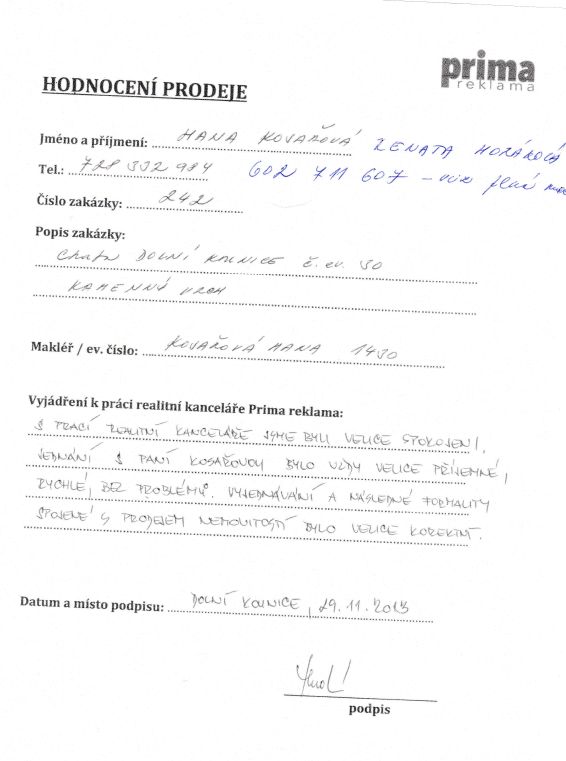 prima
reklama
HODNOCENÍ PRODEJE
Jméno a příjmení: HANA KOSAŘOVÁ RENATA HORÁKOVÁ
Tel.: 728 332 984 602 711 607 – viz
Číslo zakázky: 242
Popis zakázky:
Chata DOLNÍ KOUNICE č. ev. 30
KAMENNÝ VRCH
Makléř / ev. číslo: KOSAŘOVÁ HANA 1430
Vyjádření k práci realitní kanceláře Prima reklama:
S PRACÍ REALITNÍ KANCELÁŘE JSME BYLI VELICE SPOKOJENI,
JEDNÁNÍ S PANÍ KOSAŘOVOU BYLO VŽDY VELICE PŘÍJEMNÉ,
RYCHLÉ, BEZ PROBLÉMŮ. VYJEDNÁVÁNÍ A NÁSLEDNÉ FORMALITY
SPOJENÉ S PRODEJEM NEMOVITOSTÍ BYLO VELICE KOREKTNÍ.
Datum a místo podpisu: DOLNÍ KOUNICE, 29.11.2013
podpis